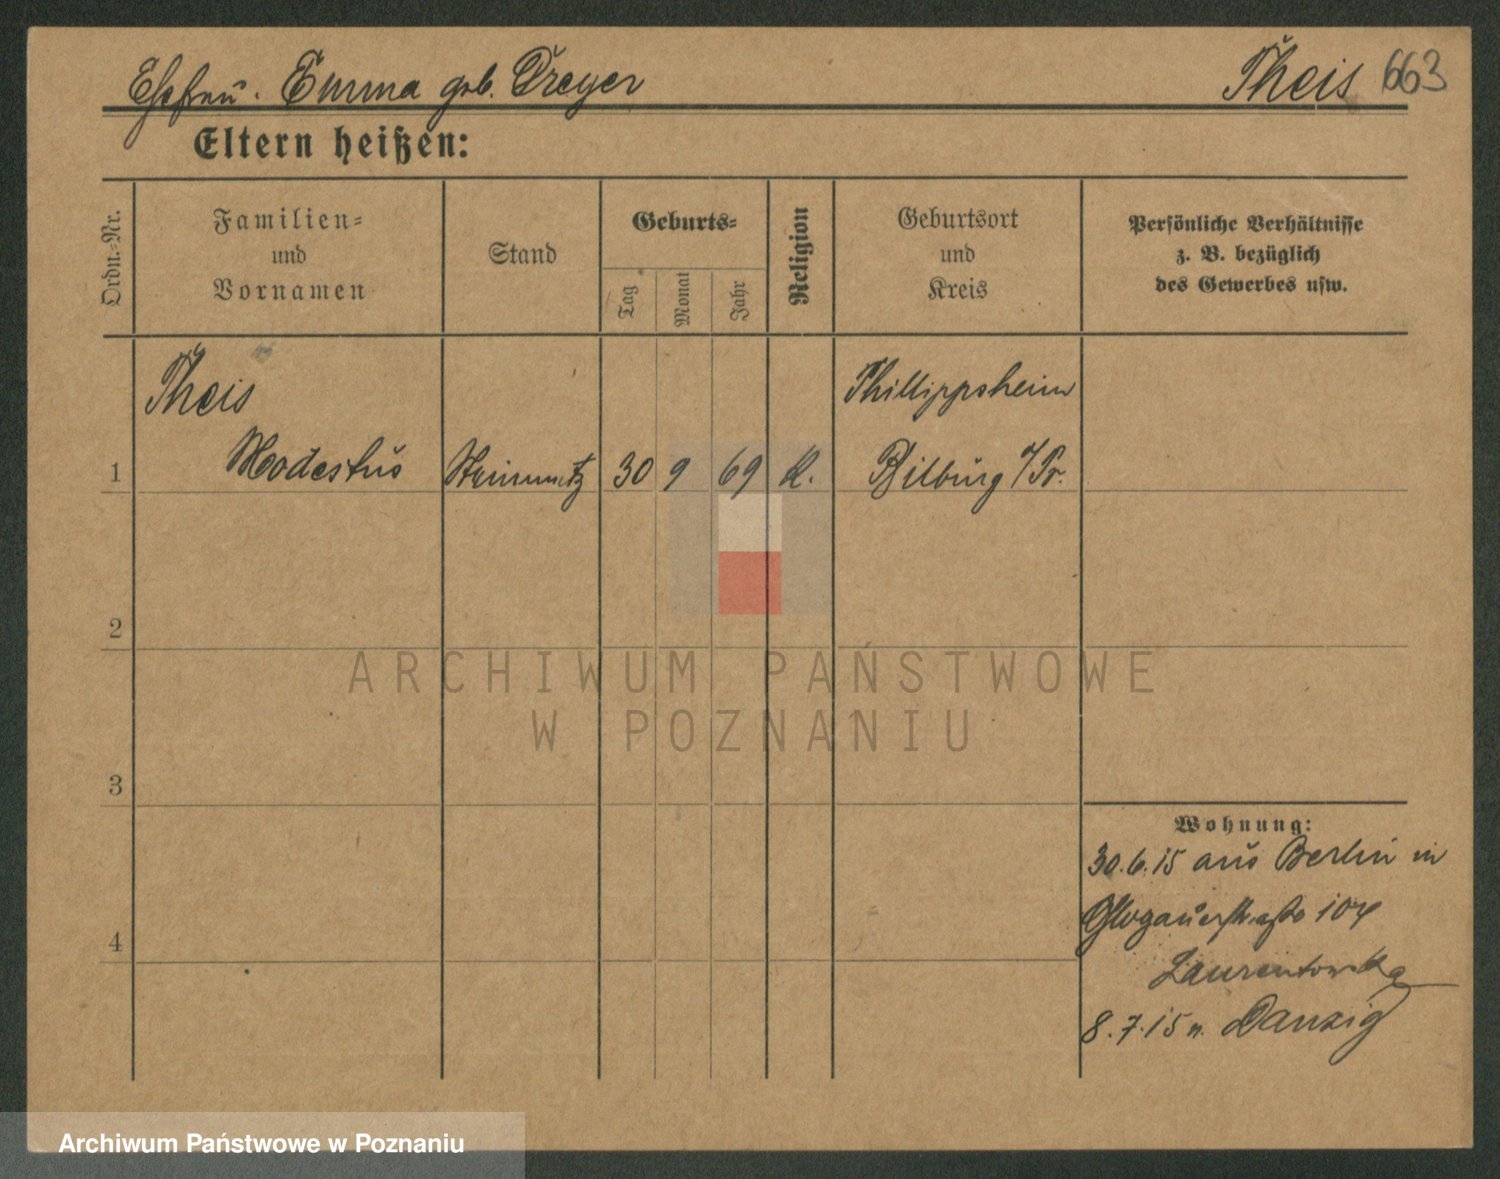 Ehefrau. Emma geb. Dreyer Theis 663
Eltern heißen:
Ordn.-Nr.
Familien-
und
Vornamen
Stand
Geburts-
Tag
Monat
Jahr
Religion
Geburtsort
und
Kreis
Persönliche Verhältnisse
z. B. bezüglich
des Gewerbes usw.
Theis
Phillippsheim
1 Modestus Steinmetz 30 9 69 K. Bitburg /Pr.
2
3
4
Wohnung:
30.6.15 aus Berlin in
Glogauerstraße 104
Laurentowska
8.7.15 n. Danzig
ARCHIWUM PAŃSTWOWE
W POZNANIU
Archiwum Państwowe w Poznaniu